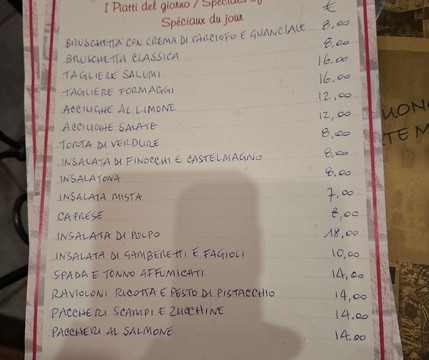 I Piatti del giorno / Specials of
Spéciaux du jour
€
BRUSCHETTA CON CREMA DI CARCIOFO E GUANCIALE 8,00
BRUSCHETTA CLASSICA 8,00
TAGLIERE SALUMI 16,00
TAGLIERE FORMAGGI 16,00
ACCIUGHE AL LIMONE 12,00
ACCIUGHE SALATE 12,00
TORTA DI VERDURE 8,00
INSALATA DI FINOCCHI E CASTELMAGNO 8,00
INSALATONA 8,00
INSALATA MISTA 7,00
CAPRESE 8,00
INSALATA DI POLPO 18,00
INSALATA DI GAMBERETTI E FAGIOLI 10,00
SPADA E TONNO AFFUMICATI 14,00
RAVIOLONI RICOTTA E PESTO DI PISTACCHIO 14,00
PACCHERI SCAMPI E ZUCCHINE 14.00
PACCHERI AL SALMONE 14.00